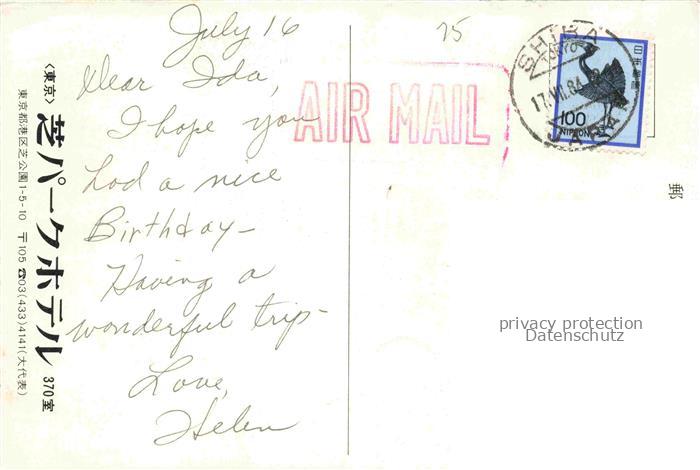 July 16
75
Dear Ida,
I hope you
had a nice
Birthday-
Having a
wonderful trip-
Love,
Helen
AIR MAIL
SHIBA
TOKYO
17.VII.84
JAPAN
日本郵便
100
NIPPON
郵
〈東京〉芝パークホテル 370室
東京都港区芝公園1-5-10 〒105 ☎03(433)4141(大代表)
privacy protection
Datenschutz